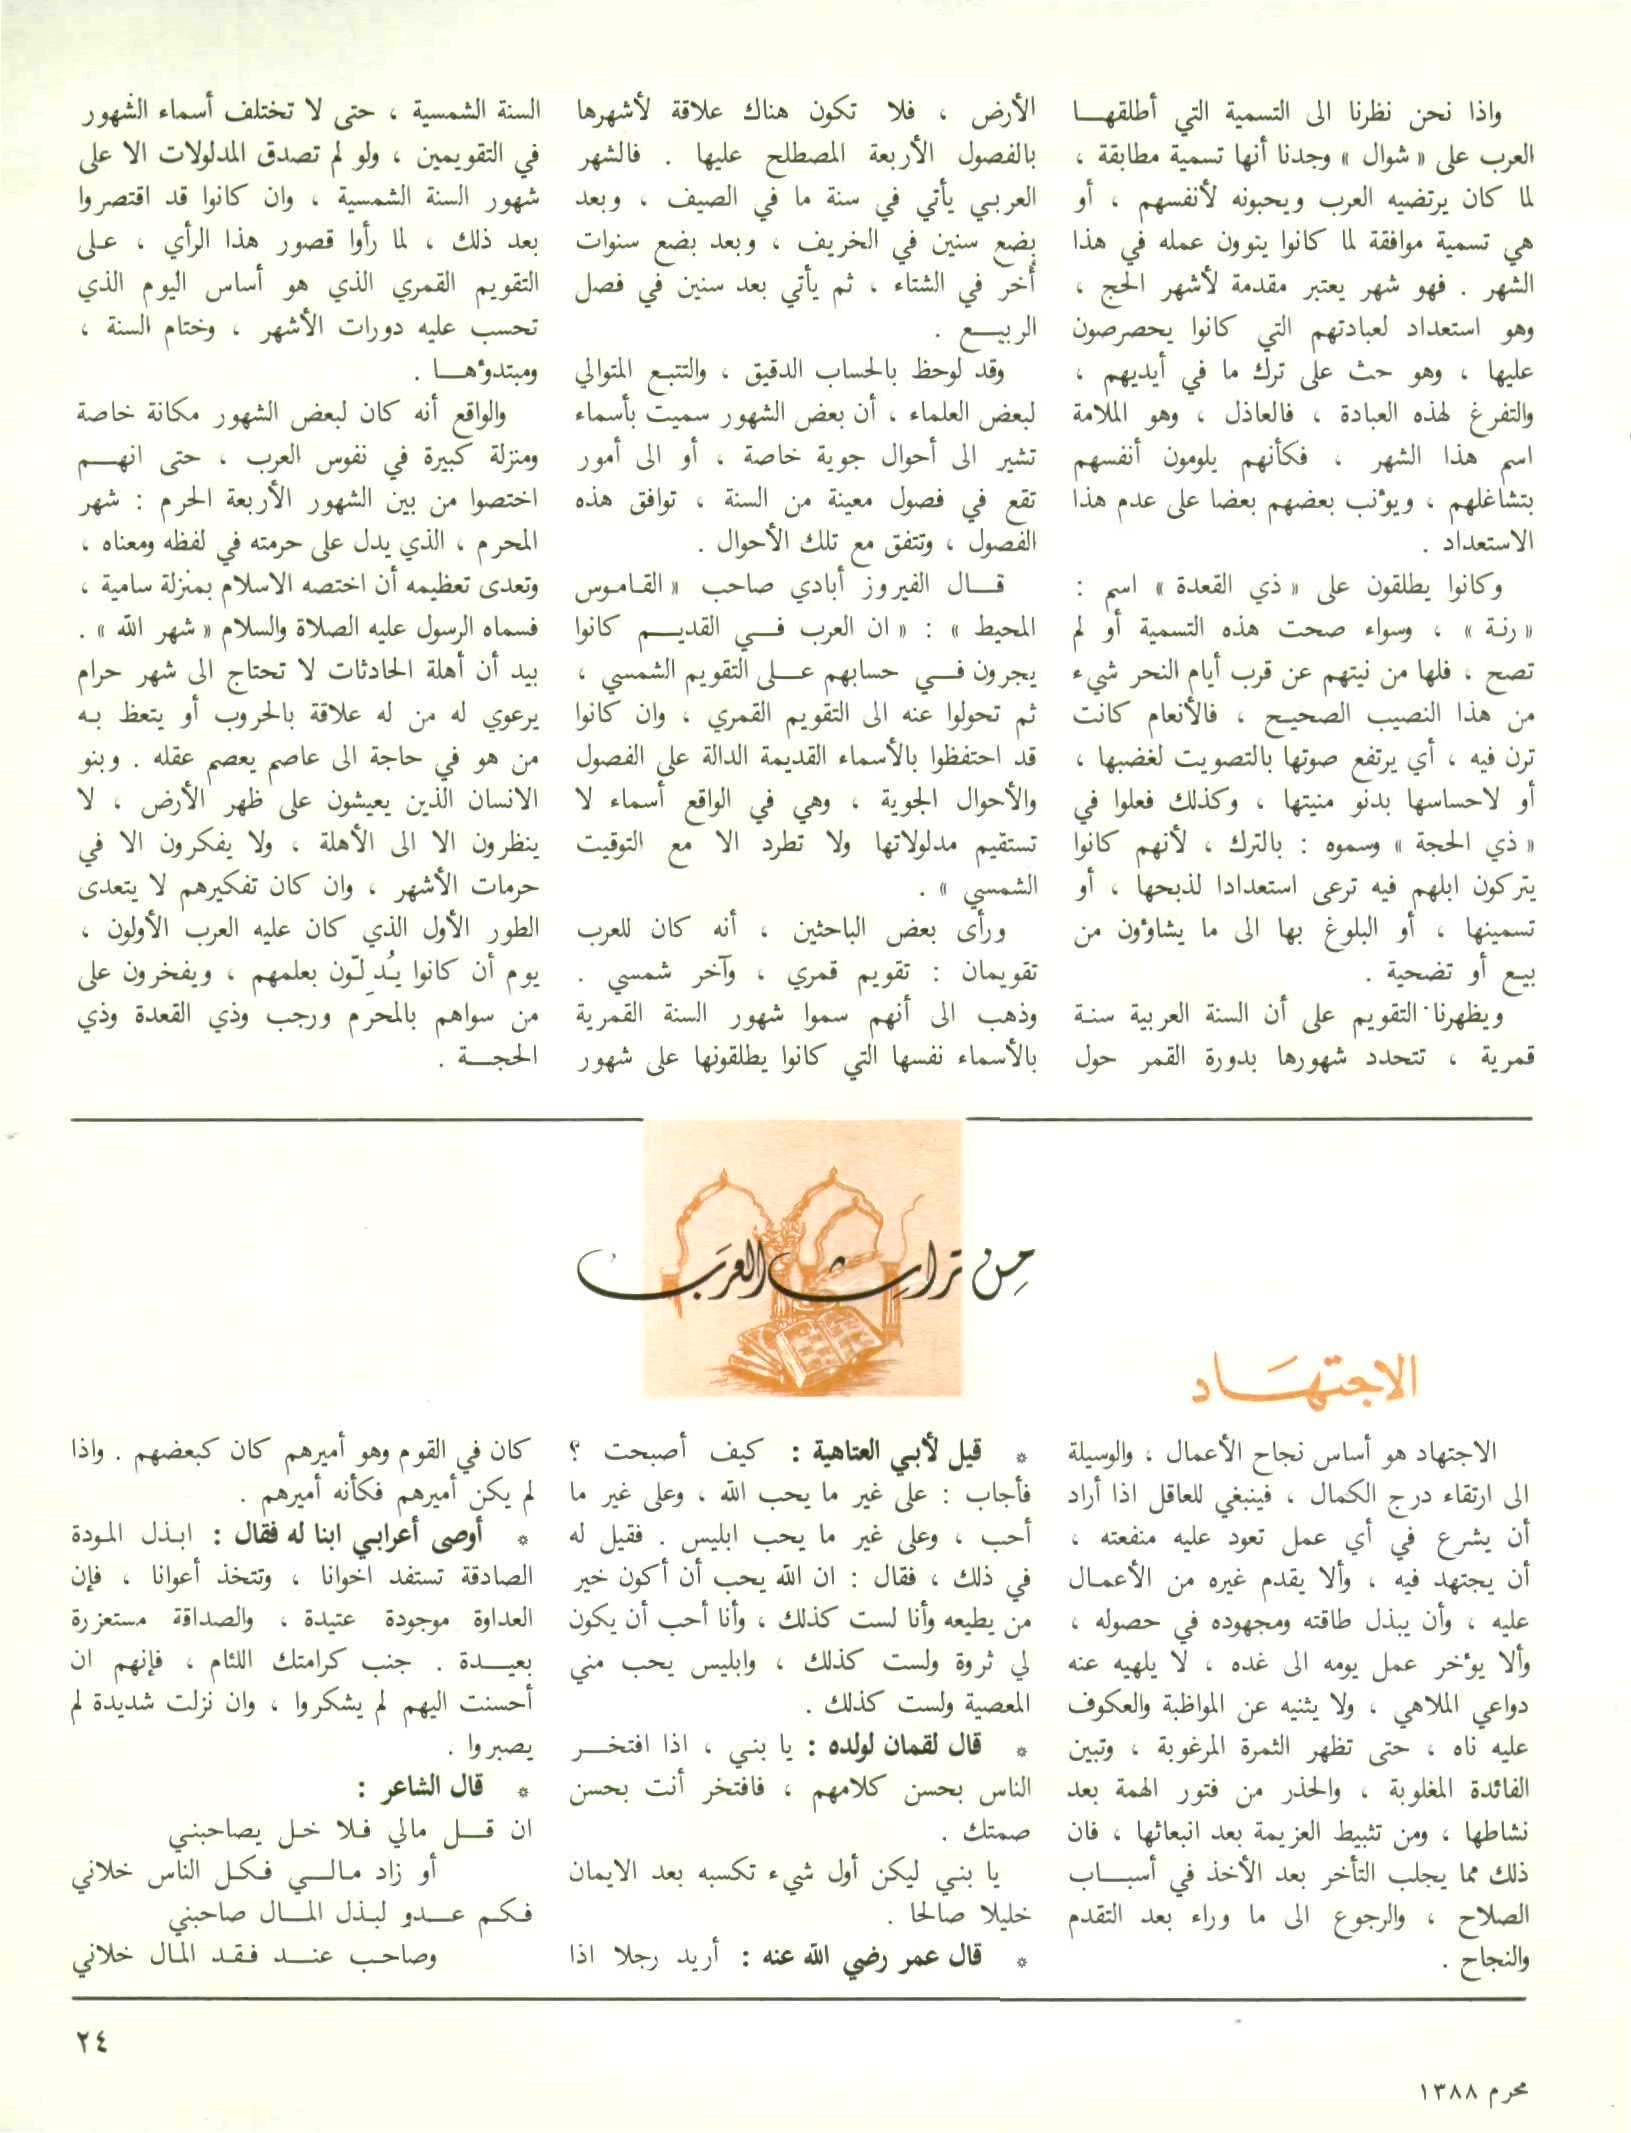 واذا نحن نظرنا الى التسمية التي أطلقهــا
العرب على « شوال » وجدنا أنها تسمية مطابقة ،
لما كان يرتضيه العرب ويحبونه لأنفسهم ، أو
هي تسمية موافقة لما كانوا ينوون عمله في هذا
الشهر . فهو شهر يعتبر مقدمة لأشهر الحج ،
وهو استعداد لعبادتهم التي كانوا يحصرصون
عليها ، وهو حث على ترك ما في أيديهم ،
والتفرغ لهذه العبادة ، فالعاذل ، وهو الملامة
اسم هذا الشهر ، فكأنهم يلومون أنفسهم
بتشاغلهم ، ويؤنب بعضهم بعضا على عدم هذا
الاستعداد .
وكانوا يطلقون على « ذي القعدة » اسم :
« رنـة » ، وسواء صحت هذه التسمية أو لم
تصح ، فلها من نيتهم عن قرب أيام النحر شيء
من هذا النصيب الصحيح ، فالأنعام كانت
ترن فيه ، أي يرتفع صوتها بالتصويت لغضبها ،
أو لاحساسها بدنو منيتها ، وكذلك فعلوا في
« ذي الحجة » وسموه : بالترك ، لأنهم كانوا
يتركون ابلهم فيه ترعى استعدادا لذبحها ، أو
تسمينها ، أو البلوغ بها الى ما يشاؤون من
بيع أو تضحية .
ويظهرنا التقويم على أن السنة العربية سنة
قمرية ، تتحدد شهورها بدورة القمر حول
الأرض ، فلا تكون هناك علاقة لأشهرها
بالفصول الأربعة المصطلح عليها . فالشهر
العربي يأتي في سنة ما في الصيف ، وبعد
بضع سنين في الخريف ، وبعد بضع سنوات
أخر في الشتاء ، ثم يأتي بعد سنين في فصل
الربيــع .
وقد لوحظ بالحساب الدقيق ، والتتبع المتوالي
لبعض العلماء ، أن بعض الشهور سميت بأسماء
تشير الى أحوال جوية خاصة ، أو الى أمور
تقع في فصول معينة من السنة ، توافق هذه
الفصول ، وتتفق مع تلك الأحوال .
قــال الفيروز أبادي صاحب « القـامـوس
المحيط » : « ان العرب فــي القديــم كانوا
يجرون فــي حسابهم عــلى التقويم الشمسي ،
ثم تحولوا عنه الى التقويم القمري ، وان كانوا
قد احتفظوا بالأسماء القديمة الدالة على الفصول
والأحوال الجوية ، وهي في الواقع أسماء لا
تستقيم مدلولاتها ولا تطرد الا مع التوقيت
الشمسي » .
ورأى بعض الباحثين ، أنه كان للعرب
تقويمان : تقويم قمري ، وآخر شمسي .
وذهب الى أنهم سموا شهور السنة القمرية
بالأسماء نفسها التي كانوا يطلقونها على شهور
السنة الشمسية ، حتى لا تختلف أسماء الشهور
في التقويمين ، ولو لم تصدق المدلولات الا على
شهور السنة الشمسية ، وان كانوا قد اقتصروا
بعد ذلك ، لما رأوا قصور هذا الرأي ، عـلى
التقويم القمري الذي هو أساس اليوم الذي
تحسب عليه دورات الأشهر ، وختام السنة ،
ومبتدوؤهــا .
والواقع أنه كان لبعض الشهور مكانة خاصة
ومنزلة كبيرة في نفوس العرب ، حتى انهــم
اختصوا من بين الشهور الأربعة الحرم : شهر
المحرم ، الذي يدل على حرمته في لفظه ومعناه ،
وتعدى تعظيمه أن اختصه الاسلام بمنزلة سامية ،
فسماه الرسول عليه الصلاة والسلام « شهر الله » .
بيد أن أهلة الحادثات لا تحتاج الى شهر حرام
يرعوي له من له علاقة بالحروب أو يتعظ بـه
من هو في حاجة الى عاصم يعصم عقله . وبنو
الانسان الذين يعيشون على ظهر الأرض ، لا
ينظرون الا الى الأهلة ، ولا يفكرون الا في
حرمات الأشهر ، وان كان تفكيرهم لا يتعدى
الطور الأول الذي كان عليه العرب الأولون ،
يوم أن كانوا يُدِلّون بعلمهم ، ويفخرون على
من سواهم بالمحرم ورجب وذي القعدة وذي
الحجــة .
مِن تراث العرَب
الاجتهَــاد
الاجتهاد هو أساس نجاح الأعمال ، والوسيلة
الى ارتقاء درج الكمال ، فينبغي للعاقل اذا أراد
أن يشرع في أي عمل تعود عليه منفعته ،
أن يجتهد فيه ، وألا يقدم غيره من الأعمـال
عليه ، وأن يبذل طاقته ومجهوده في حصوله ،
وألا يؤخر عمل يومه الى غده ، لا يلهيه عنه
دواعي الملاهي ، ولا يثنيه عن المواظبة والعكوف
عليه ناه ، حتى تظهر الثمرة المرغوبة ، وتبين
الفائدة المغلوبة ، والحذر من فتور الهمة بعد
نشاطها ، ومن تثبيط العزيمة بعد انبعاثها ، فان
ذلك مما يجلب التأخر بعد الأخذ في أسبــاب
الصلاح ، والرجوع الى ما وراء بعد التقدم
والنجاح .
* قيل لأبـي العتاهية : كيف أصبحت ؟
فأجاب : على غير ما يحب الله ، وعلى غير ما
أحب ، وعلى غير ما يحب ابليس . فقيل له
في ذلك ، فقال : ان الله يحب أن أكون خير
من يطيعه وأنا لست كذلك ، وأنا أحب أن يكون
لي ثروة ولست كذلك ، وابليس يحب مني
المعصية ولست كذلك .
* قال لقمان لولده : يا بنـي ، اذا افتخــر
الناس بحسن كلامهم ، فافتخر أنت بحسن
صمتك .
يا بنـي ليكن أول شيء تكسبه بعد الايمان
خليلا صالحا .
* قال عمر رضي الله عنه : أريد رجلا اذا
كان في القوم وهو أميرهم كان كبعضهم . واذا
لم يكن أميرهم فكأنه أميرهم .
* أوصى أعرابـي ابنا له فقال : ابـذل المودة
الصادقة تستفد اخوانا ، وتتخذ أعوانا ، فإن
العداوة موجودة عتيدة ، والصداقة مستعزرة
بعيــدة . جنب كرامتك اللئام ، فإنهم ان
أحسنت اليهم لم يشكروا ، وان نزلت شديدة لم
يصبروا .
* قال الشاعر :
ان قــل مالي فـلا خـل يصاحبنـي
أو زاد مـالــي فـكـل الناس خلاني
فـكـم عــدو لبـذل المــال صاحبني
وصاحـب عنــد فـقـد المـال خلاني
٢٤
محرم ١٣٨٨